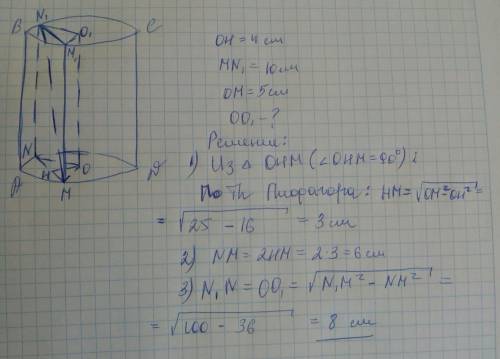 B N₁ O₁ C
M₁
N O
A H D
M
OH = 4 см
MN₁ = 10 см
OM = 5 см
OO₁ - ?
Решение:
1) Из Δ OHM (∠OHM = 90°):
По Тh Пифагора: HM = √OM² - OH² =
= √25 - 16 = 3 см
2) NM = 2HM = 2·3 = 6 см
3) N₁N = OO₁ = √N₁M² - NM² =
= √100 - 36 = 8 см